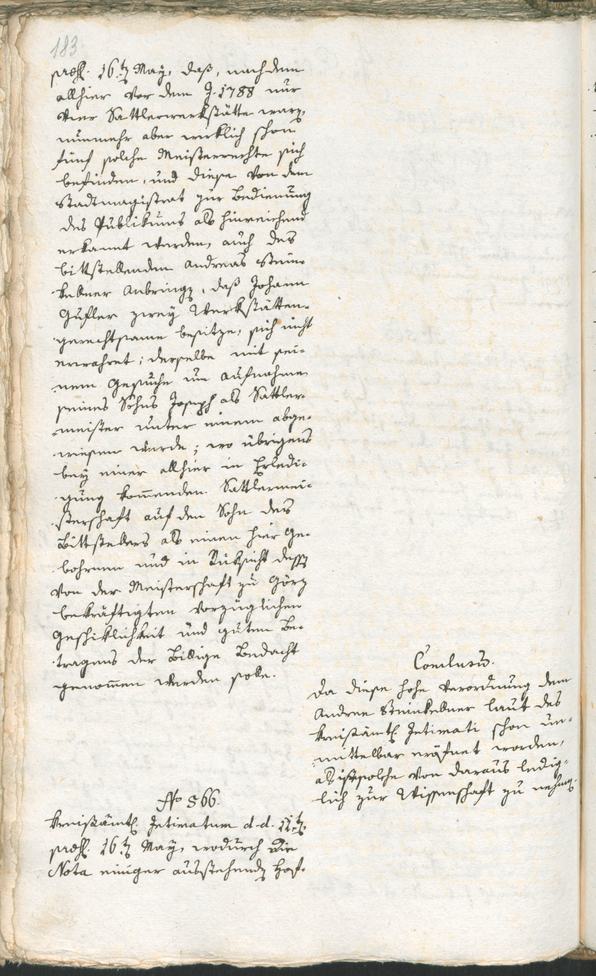 183.
praes. 16ten May, daß, nachdem
allhier vor dem J. 1788 nur
vier Sattlerwerkstätte waren,
nunmehr aber wirklich schon
fünf solche Meisterrechte sich
befinden, und diese von dem
Stadtmagistrat zur Bedienung
des Publikums als hinreichend
erkannt worden, auch des
bittstellenden Andreas Stein-
kellner Anbringen, daß Johann
Gufler zwey Werkstätten-
gerechtsame besitze, sich nicht
erwahret; derselbe mit sei-
nem Gesuche um Aufnahme
seines Sohns Joseph als Sattler-
meister unter einem abge-
wiesen werde; wo übrigens
bey einer allhier in Erledi-
gung kommenden Sattlermei-
sterschaft auf den Sohn des
Bittstellers als einen hier ge-
bohrnen und in Rüksicht dessen
von der Meisterschaft zu Görz
bekräftigten vorzüglichen
Geschiklichkeit und guten Be-
tragens der billige Bedacht
genommen werden solle.
Conclusum.
Da diese hohe Verordnung dem
Andree Steinkellner laut des
kreisämtl. Intimati schon un-
mittelbar eröfnet worden,
als ist solche von daraus ledig-
lich zur Wissenschaft zu nehmen.
No 566.
Kreisämtl. Intimatum d. d. 12ten
praes. 16ten May, wodurch die
Nota einiger ausstehenden Hof-